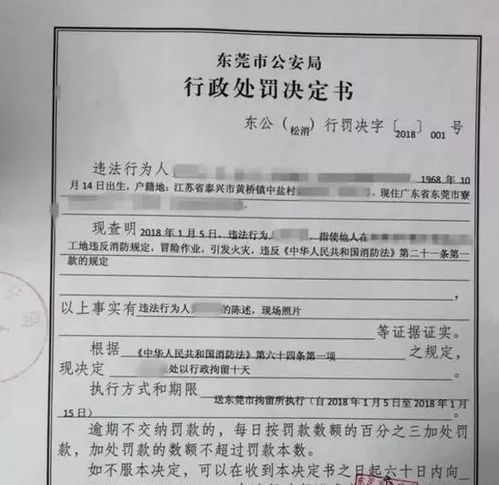 东莞市公安局
行政处罚决定书
东公（松消）行罚决字〔2018〕001 号
违法行为人 1968 年 10
月 14 日出生，户籍地：江苏省泰兴市黄桥镇中盐村 ，现住广东省东莞市寮
现查明 2018 年 1 月 5 日，违法行为人 ，指使他人在
工地违反消防规定，冒险作业，引发火灾，违反《中华人民共和国消防法》第二十一条第一
款的规定
以上事实有违法行为人 的陈述，现场照片
等证据证实。
根据《中华人民共和国消防法》第六十四条第一项之规定，
现决定 处以行政拘留十天
执行方式和期限 送东莞市拘留所执行（自 2018 年 1 月 5 日至 2018 年 1 月
15 日）
逾期不交纳罚款的，每日按罚款数额的百分之三加处罚
款，加处罚款的数额不超过罚款本数。
如不服本决定，可以在收到本决定书之日起六十日内向